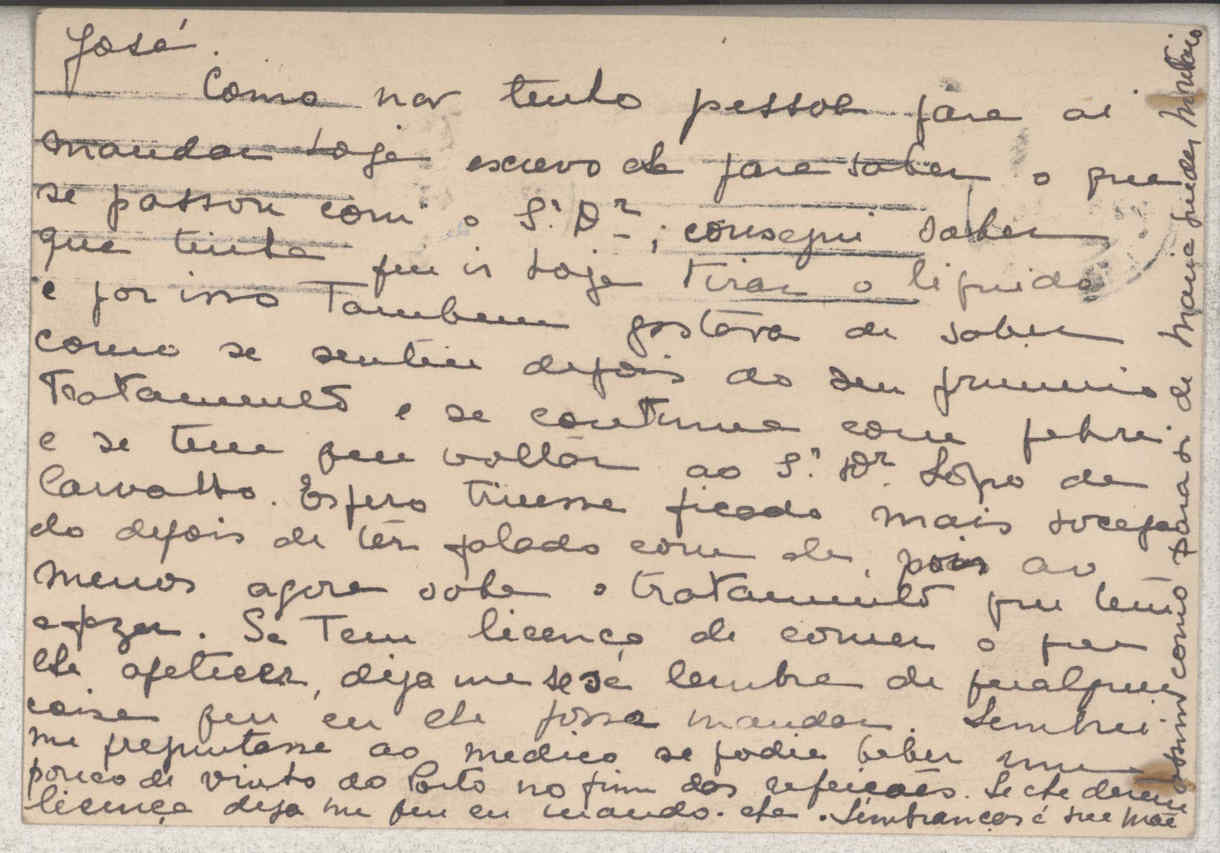 José.
Como não tenho pessoa para ai
mandar hoje escrevo lhe para saber o que
se passou com o Sr. Dr.; consegui saber
que tinha que ir hoje tirar o liquido
e por isso tambem gostava de saber
como se sentiu depois do seu primeiro
tratamento e se continua com febre
e se tem que voltar ao Sr. Dr. Lopo de
Carvalho. Espero tivesse ficado mais socega
do depois de ter falado com ele, pois ao
menos agora sabe o tratamento que tem
a fazer. Se tem licença de comer o que
lhe apetecer, diga me se se lembra de qualquer
coisa que eu lhe possa mandar. Lembrei
me preguntasse ao medico se podia beber um
pouco de vinho do Porto no fim das refeicões. Se lhe derem
licença diga me que eu mando-lhe. Lembranças á sua mãe
assim como para si de Maria